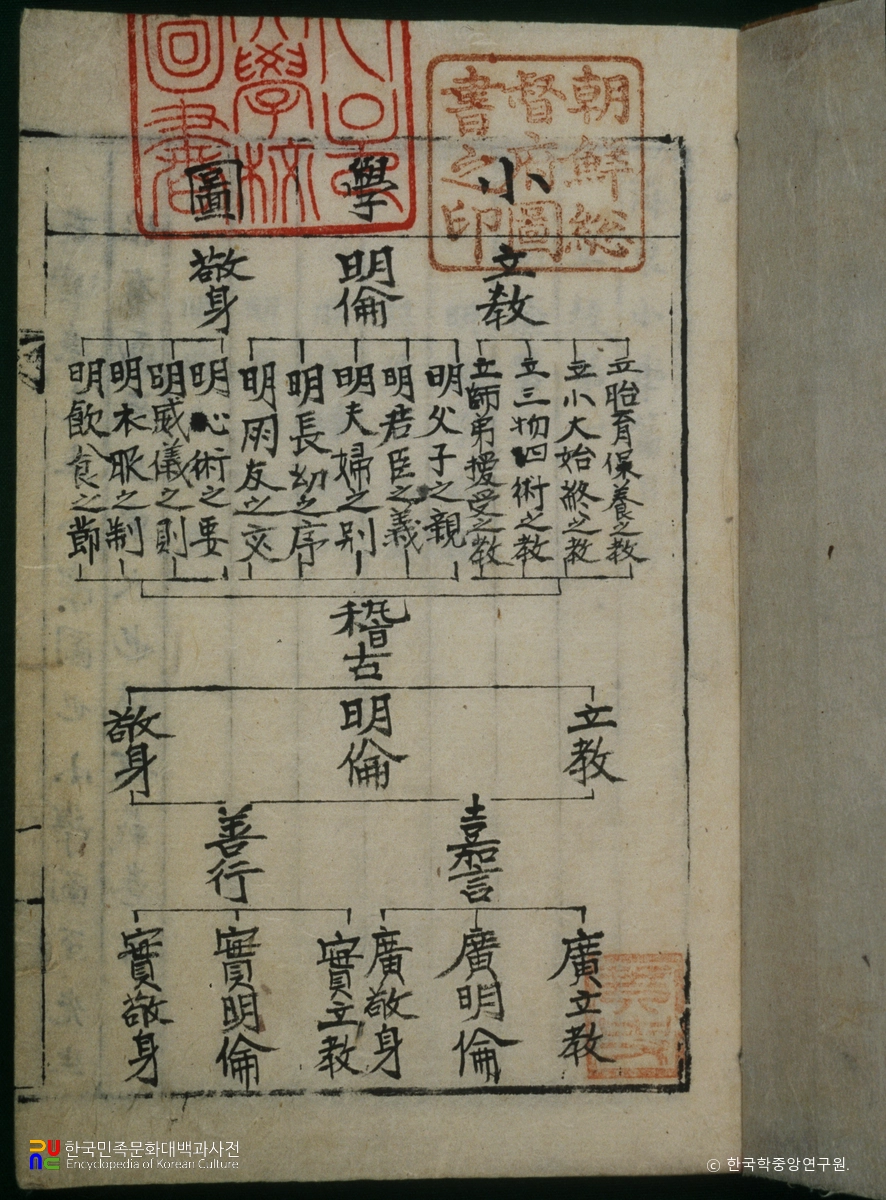 朝鮮総
督府圖
書之印
小學圖
立教
明倫
敬身
立胎育保養之教
立小大始終之教
立三物四術之教
立師弟授受之教
明父子之親
明君臣之義
明夫婦之别
明長幼之序
明朋友之交
明心術之要
明威儀之則
明衣服之制
明飮食之節
稽古
立教
明倫
敬身
嘉言
善行
廣立教
廣明倫
廣敬身
實立教
實明倫
實敬身
한국민족문화대백과사전
Encyclopedia of Korean Culture
© 한국학중앙연구원.